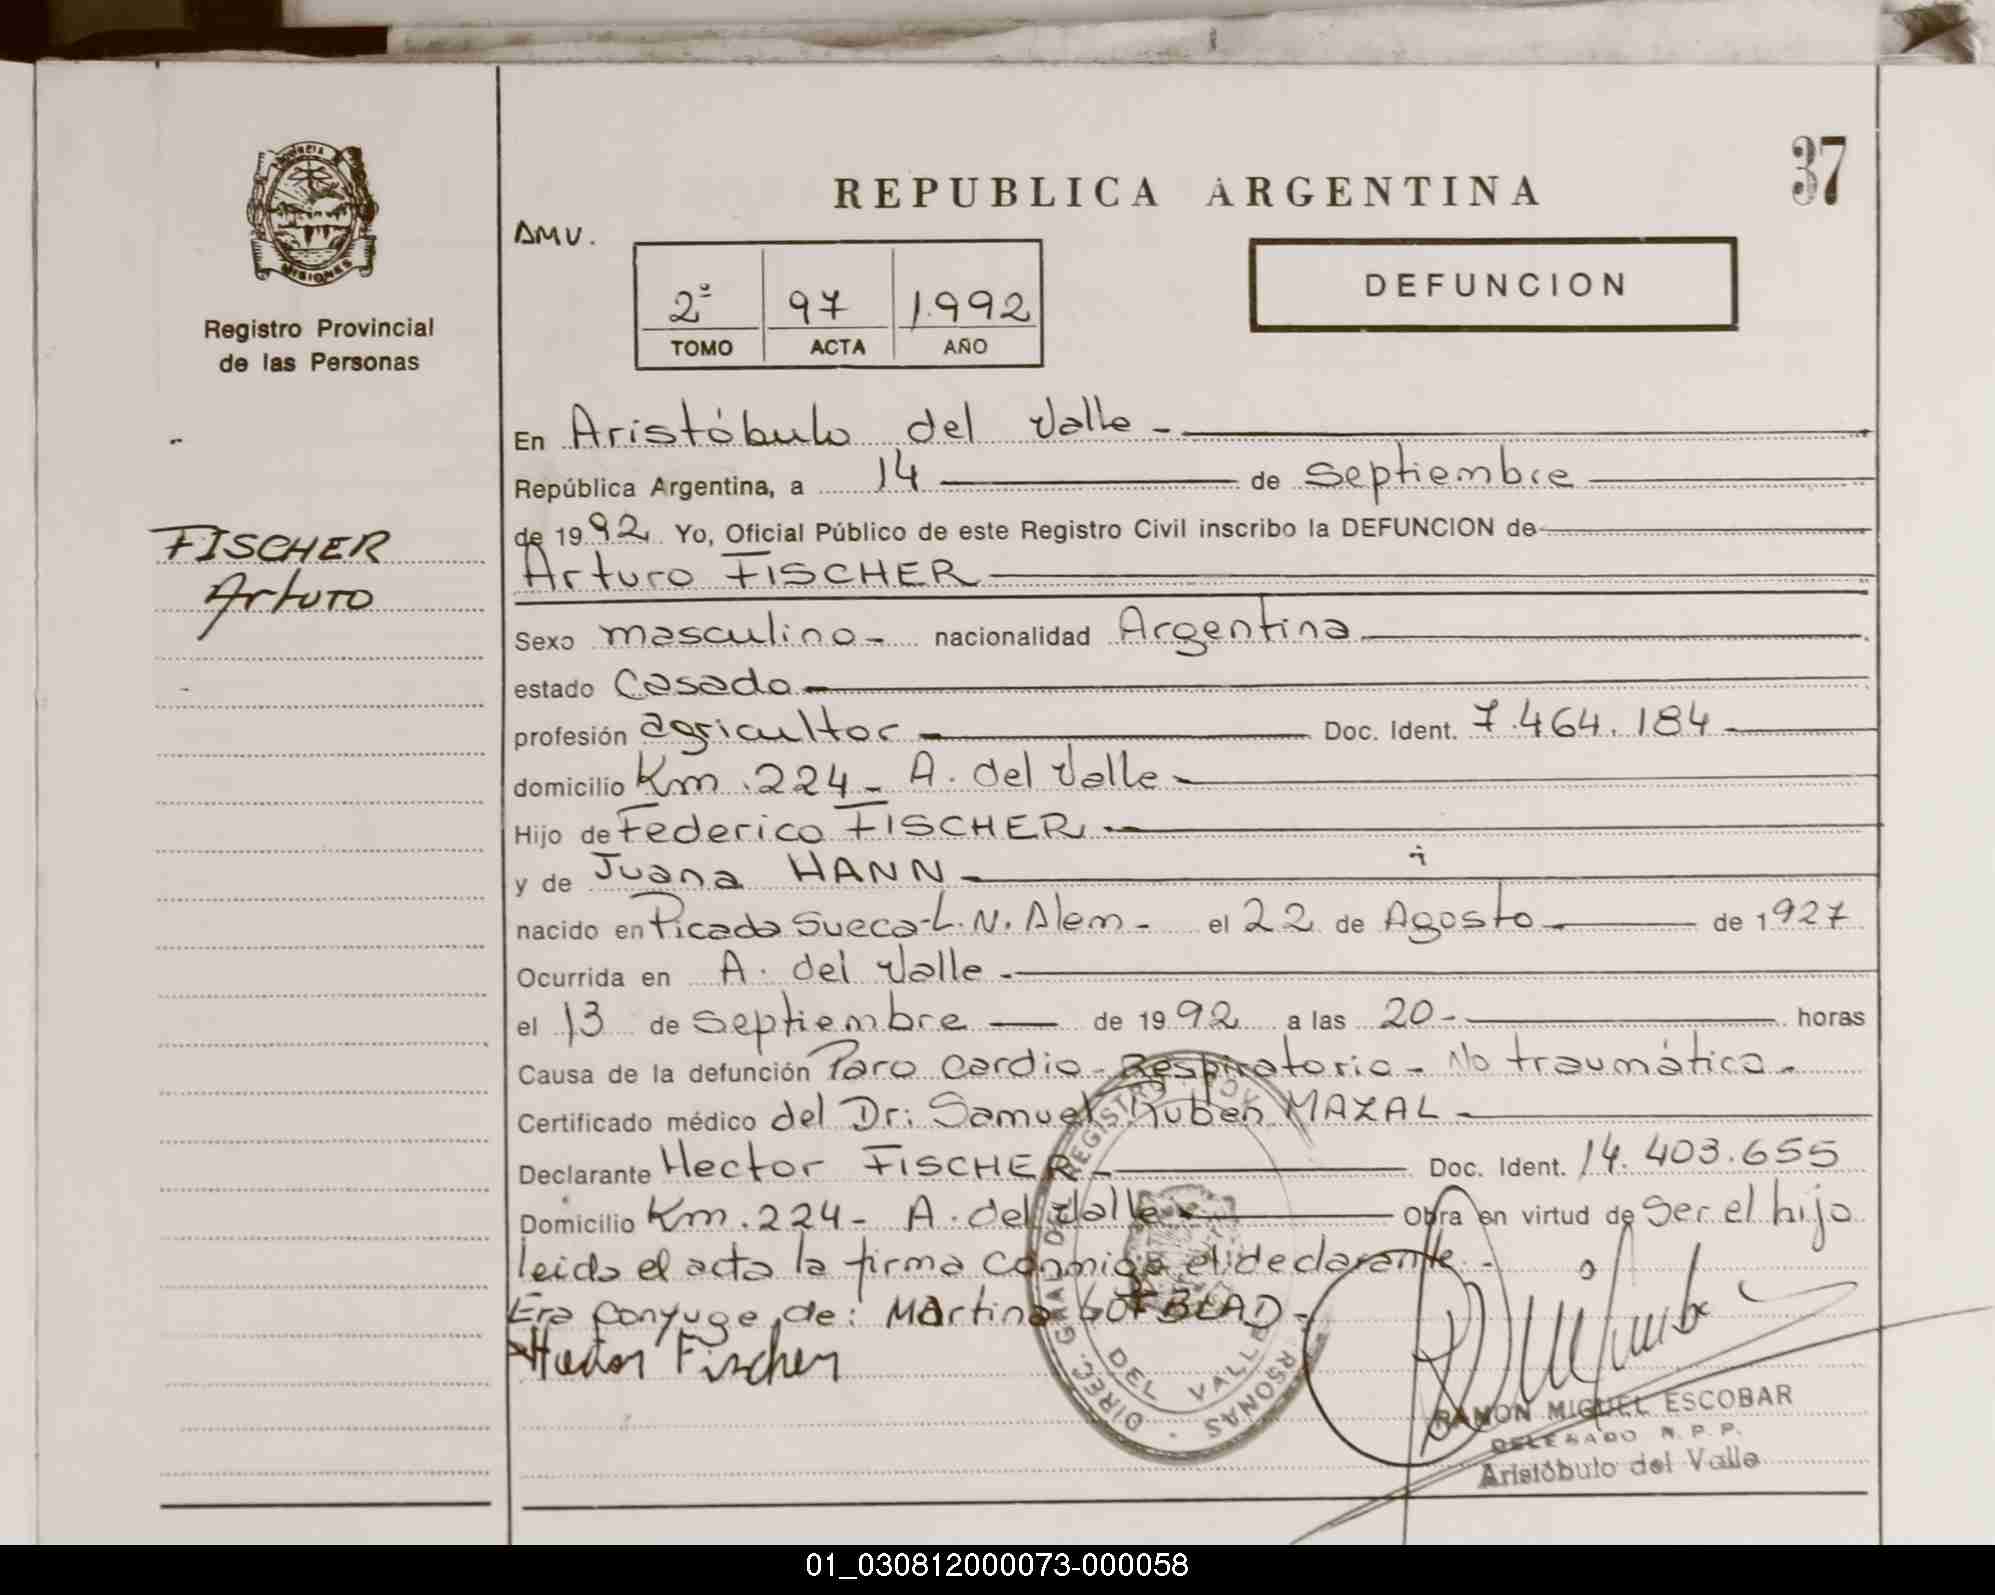 37
REPUBLICA ARGENTINA
PROVINCIA
MISIONES
Registro Provincial
de las Personas
AMV.
2º 97 1.992
TOMO ACTA AÑO
DEFUNCION
FISCHER
Arturo
En Aristóbulo del Valle -
República Argentina, a 14 de septiembre
de 1992 Yo, Oficial Público de este Registro Civil inscribo la DEFUNCION de
Arturo FISCHER
Sexo masculino - nacionalidad Argentina
estado Casado
profesión agricultor Doc. Ident. 7.464.184
domicilio Km. 224 - A. del Valle
Hijo de Federico FISCHER
y de Juana HANN
nacido en Picada Sueca - L. N. Alem - el 22 de Agosto de 1927
Ocurrida en A. del Valle -
el 13 de septiembre de 1992 a las 20 - horas
Causa de la defunción Paro Cardio - Respiratorio - No traumática -
Certificado médico del Dr: Samuel Ruben MAZAL
Declarante Hector FISCHER - Doc. Ident. 14.403.655
Domicilio Km. 224 - A. del Valle Obra en virtud de Ser el hijo
leida el acta la firma conmigo el declarante -
Era conyuge de: Martina -
Hector Fischer
DIREC. GRAL DEL REGISTRO PERSONAS
DEL VALLE
RAMON MIGUEL ESCOBAR
DELEGADO R. P. P.
Aristóbulo del Valle
01_030812000073-000058